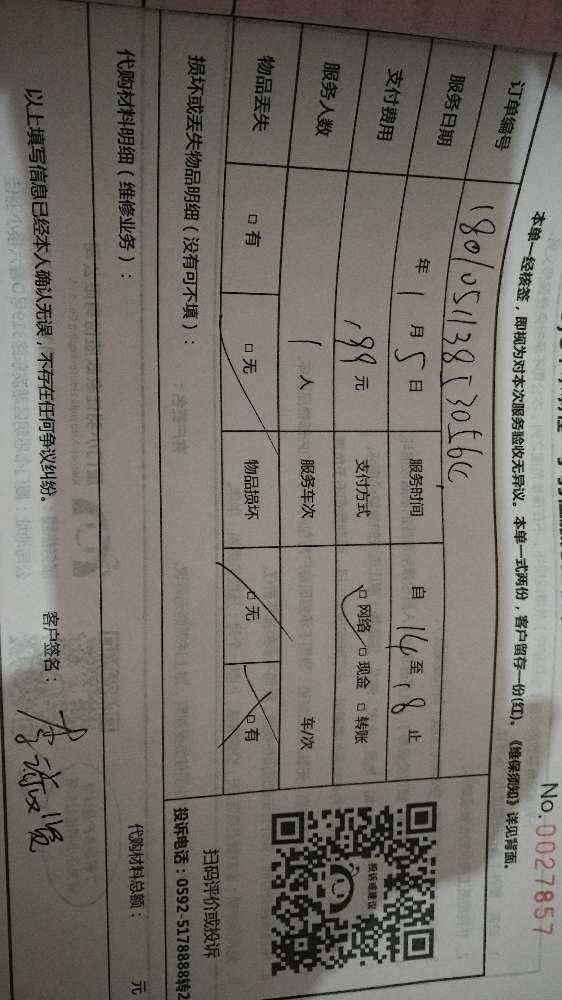 No.0027857
本单一经核签，即视为对本次服务验收无异议。本单一式两份，客户留存一份(红)。《维保须知》详见背面。
订单编号
服务日期 年 1 月 5 日 服务时间 自 14 至 18 止
支付费用 199 元 支付方式 □网络 □现金 □转账
服务人数 1 人 服务车次 车/次
物品丢失 □有 □无 物品损坏 □无 □有
投诉或建议
扫码评价或投诉
投诉电话：0592-5178888转2
损坏或丢失物品明细（没有可不填）：
代购材料明细（维修业务）： 代购材料总额： 元
以上填写信息已经本人确认无误，不存在任何争议纠纷。 客户签名：